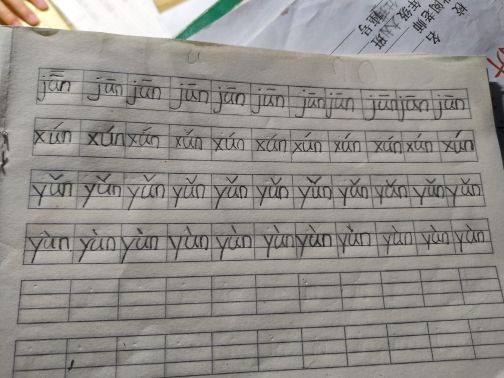 校 名
老师
年级 班
号
jūn jūn jūn jūn jūn jūn jūn jūn jūn jūn jūn
xún xún xún xún xún xún xún xún xún xún xún
yǔn yǔn yǔn yǔn yǔn yǔn yǔn yǔn yǔn yǔn yǔn
yùn yùn yùn yùn yùn yùn yùn yùn yùn yùn yùn